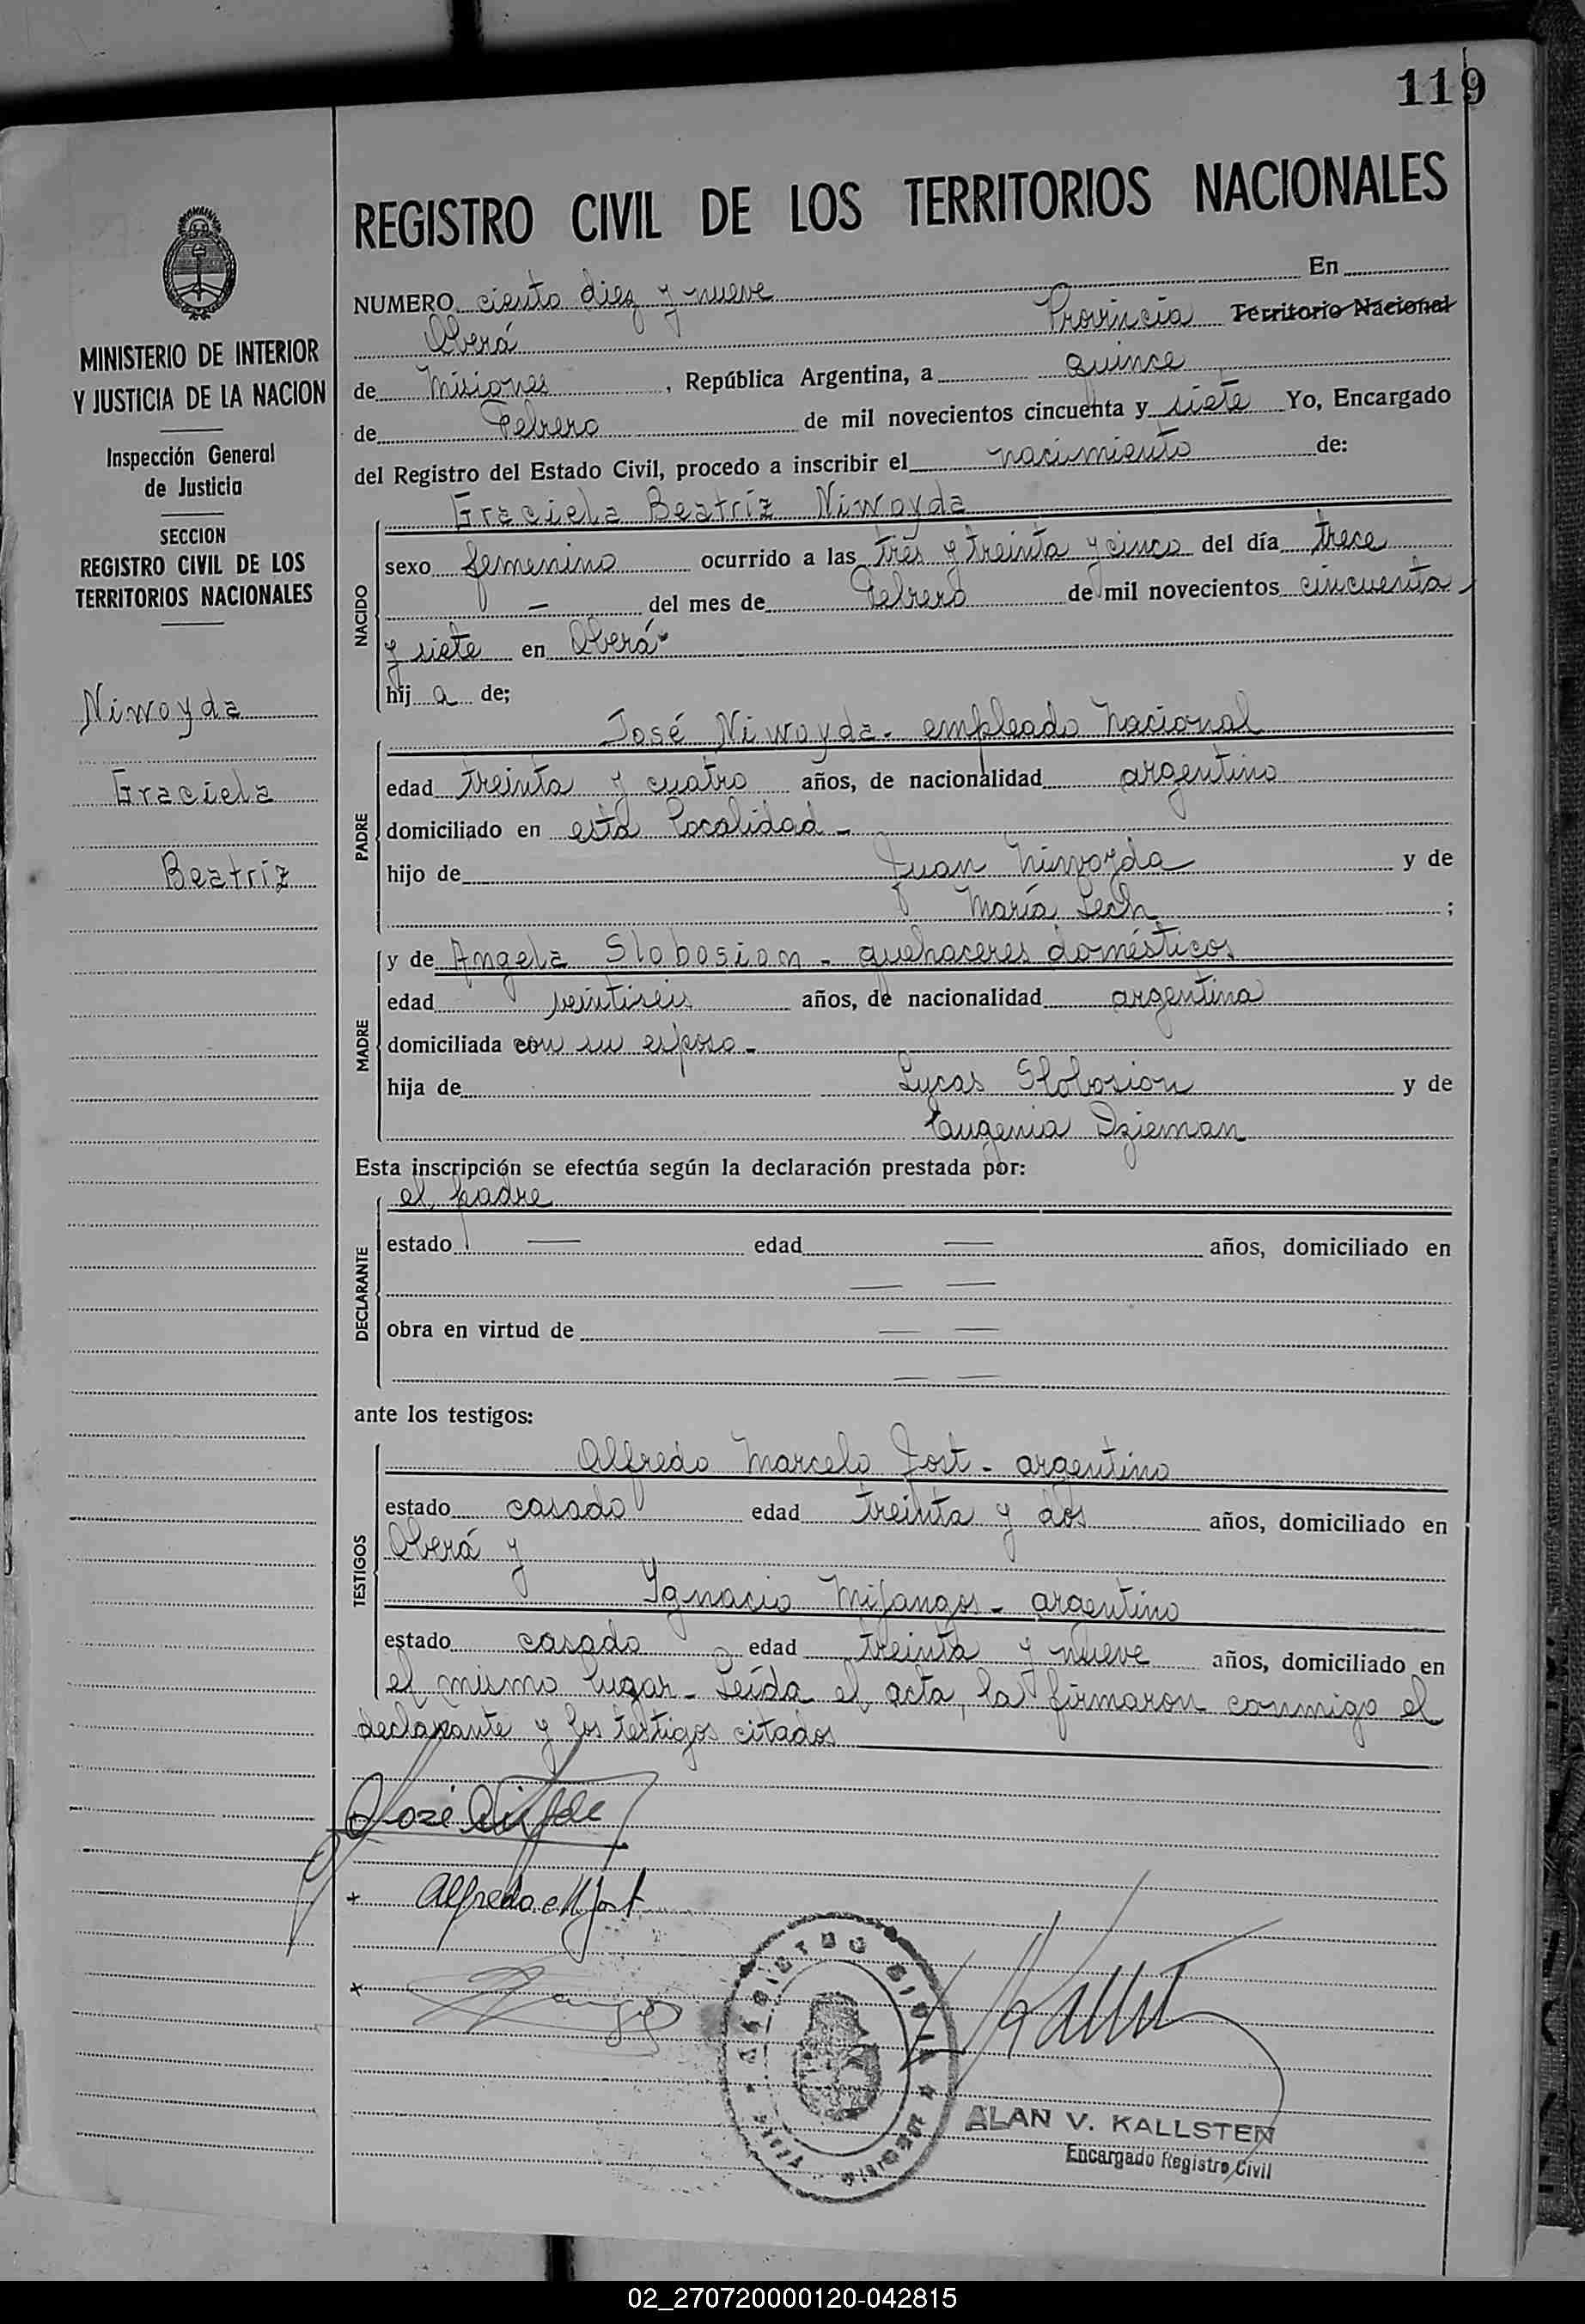 119
REGISTRO CIVIL DE LOS TERRITORIOS NACIONALES
MINISTERIO DE INTERIOR
Y JUSTICIA DE LA NACION
Inspección General
de Justicia
SECCION
REGISTRO CIVIL DE LOS
TERRITORIOS NACIONALES
Niwoyda
Graciela
Beatríz
NUMERO ciento diez y nueve En
Oberá Provincia Territorio Nacional
de Misiones, República Argentina, a quince
de Febrero de mil novecientos cincuenta y siete Yo, Encargado
del Registro del Estado Civil, procedo a inscribir el nacimiento de:
NACIDO
Graciela Beatríz Niwoyda
sexo femenino ocurrido a las tres y treinta y cinco del día trece
— del mes de Febrero de mil novecientos cincuenta
y siete en Oberá-
hij a de;
PADRE
José Niwoyda - empleado nacional
edad treinta y cuatro años, de nacionalidad argentino
domiciliado en esta localidad -
hijo de Juan Niwoyda y de
María Lech ;
MADRE
y de Angela Slobosion - quehaceres domésticos
edad veintiseis años, de nacionalidad argentina
domiciliada con su esposo -
hija de Lucas Slobosion y de
Eugenia Dzieman
Esta inscripción se efectúa según la declaración prestada por:
DECLARANTE
el padre
estado — edad — años, domiciliado en
— —
obra en virtud de — —
— —
ante los testigos:
TESTIGOS
Alfredo Marcelo Jost - argentino
estado casado edad treinta y dos años, domiciliado en
Oberá y
Ygnacio Mijangos - argentino
estado casado edad treinta y nueve años, domiciliado en
el mismo lugar - Leída el acta, la firmaron conmigo el
declarante y los testigos citados
José
+ Alfredo M Jost
+
REGISTRO CIVIL
OBERA MISIONES
ALAN V. KALLSTEN
Encargado Registro Civil
02_270720000120-042815